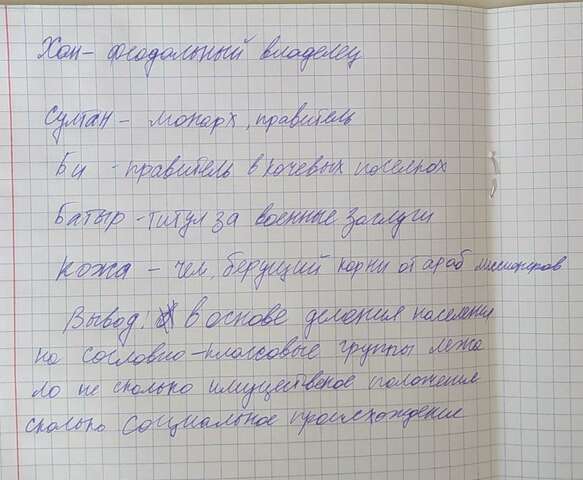 Хан – феодальный владелец
Султан – монарх, правитель
Би - правитель в кочевых поселках
Батыр - титул за военные заслуги
Кожа – чел, берущий корни от араб миссионеров
Вывод: в основе деления населения
на сословно-классовые группы лежа
ло не сколько имущественое положение
сколько социальное происхождение